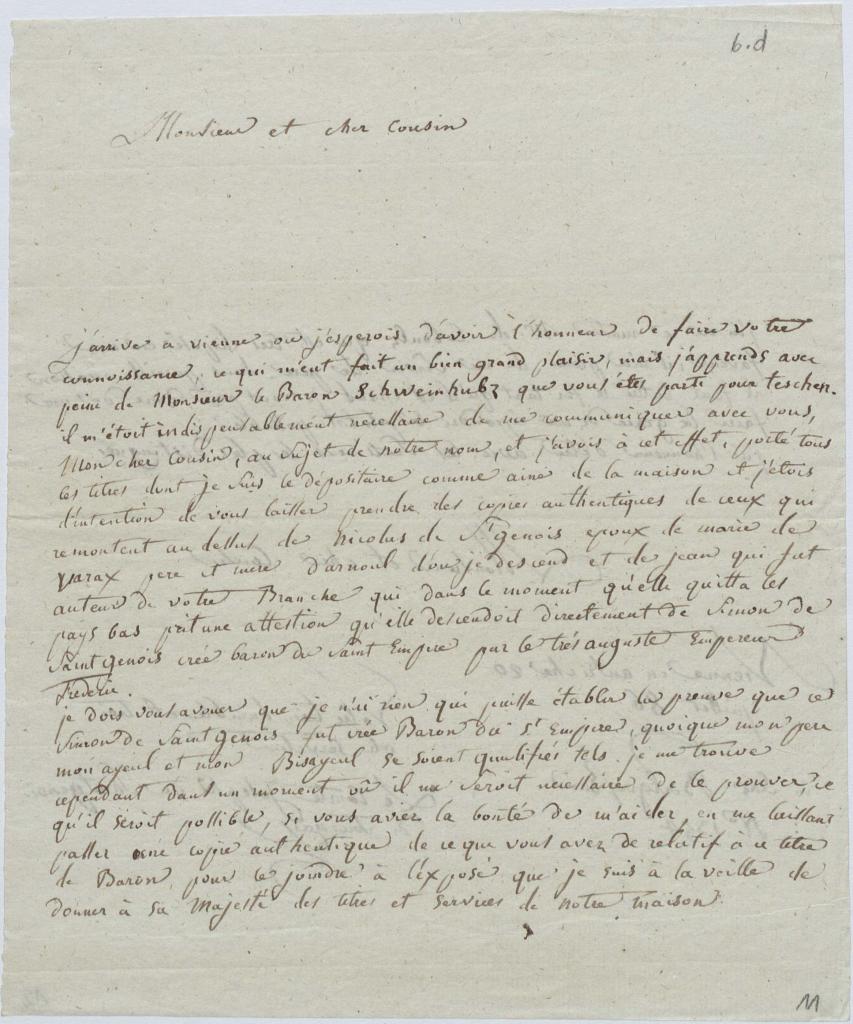 6.d
Monsieur et cher Cousin
j'arrive a vienne ou j'esperois d'avoir l'honneur de faire votre
connoissance, ce qui m'eut fait un bien grand plaisir, mais j'apprends avec
peine de Monsieur le Baron Schweinhubz que vous étes parti pour teschen.
il m'étoit indispensablement necessaire de me communiquer avec vous,
Mon cher Cousin, au sujet de notre nom, et j'avois à cet effet, porté tous
les titres dont je suis le dépositaire comme ainé de la maison et j'etois
d'intention de vous laisser prendre des copies authentiques de ceux qui
remontent au dessus de Nicolas de St genois epoux de marie de
yarax pere et mere d'arnoul dou je descend et de jean qui fut
auteur de votre Branche qui dans le moment qu'elle quitta les
pays bas prit une attestion qu'elle descendoit directement de Simon de
Saint genois créé baron du Saint Empire par le trés auguste Empereur
Frederic.
je dois vous avouer que je n'ai rien qui puisse établir la preuve que ce
Simon de Saint genois fut créé Baron du St Empire, quoique mon pere
mon ayeul et mon Bisayeul se soient qualifiés tels. je me trouve
cependant dans un moment où il me seroit necessaire de le prouver, ce
qu'il seroit possible, si vous aviez la bonté de m'aider, en me laissant
passer une copie authentique de ce que vous avez de relatif à ce titre
de Baron, pour le joindre à l'éxposé que je suis à la veille de
donner à Sa Majesté des titres et services de notre maison.
11